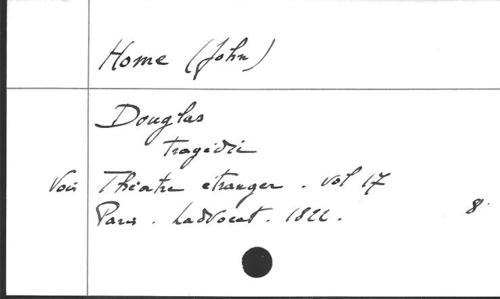 Home (John)
Douglas
Tragédie
Voir Théatre etranger . vol 17
Paris . Ladvocat . 1822 . 8